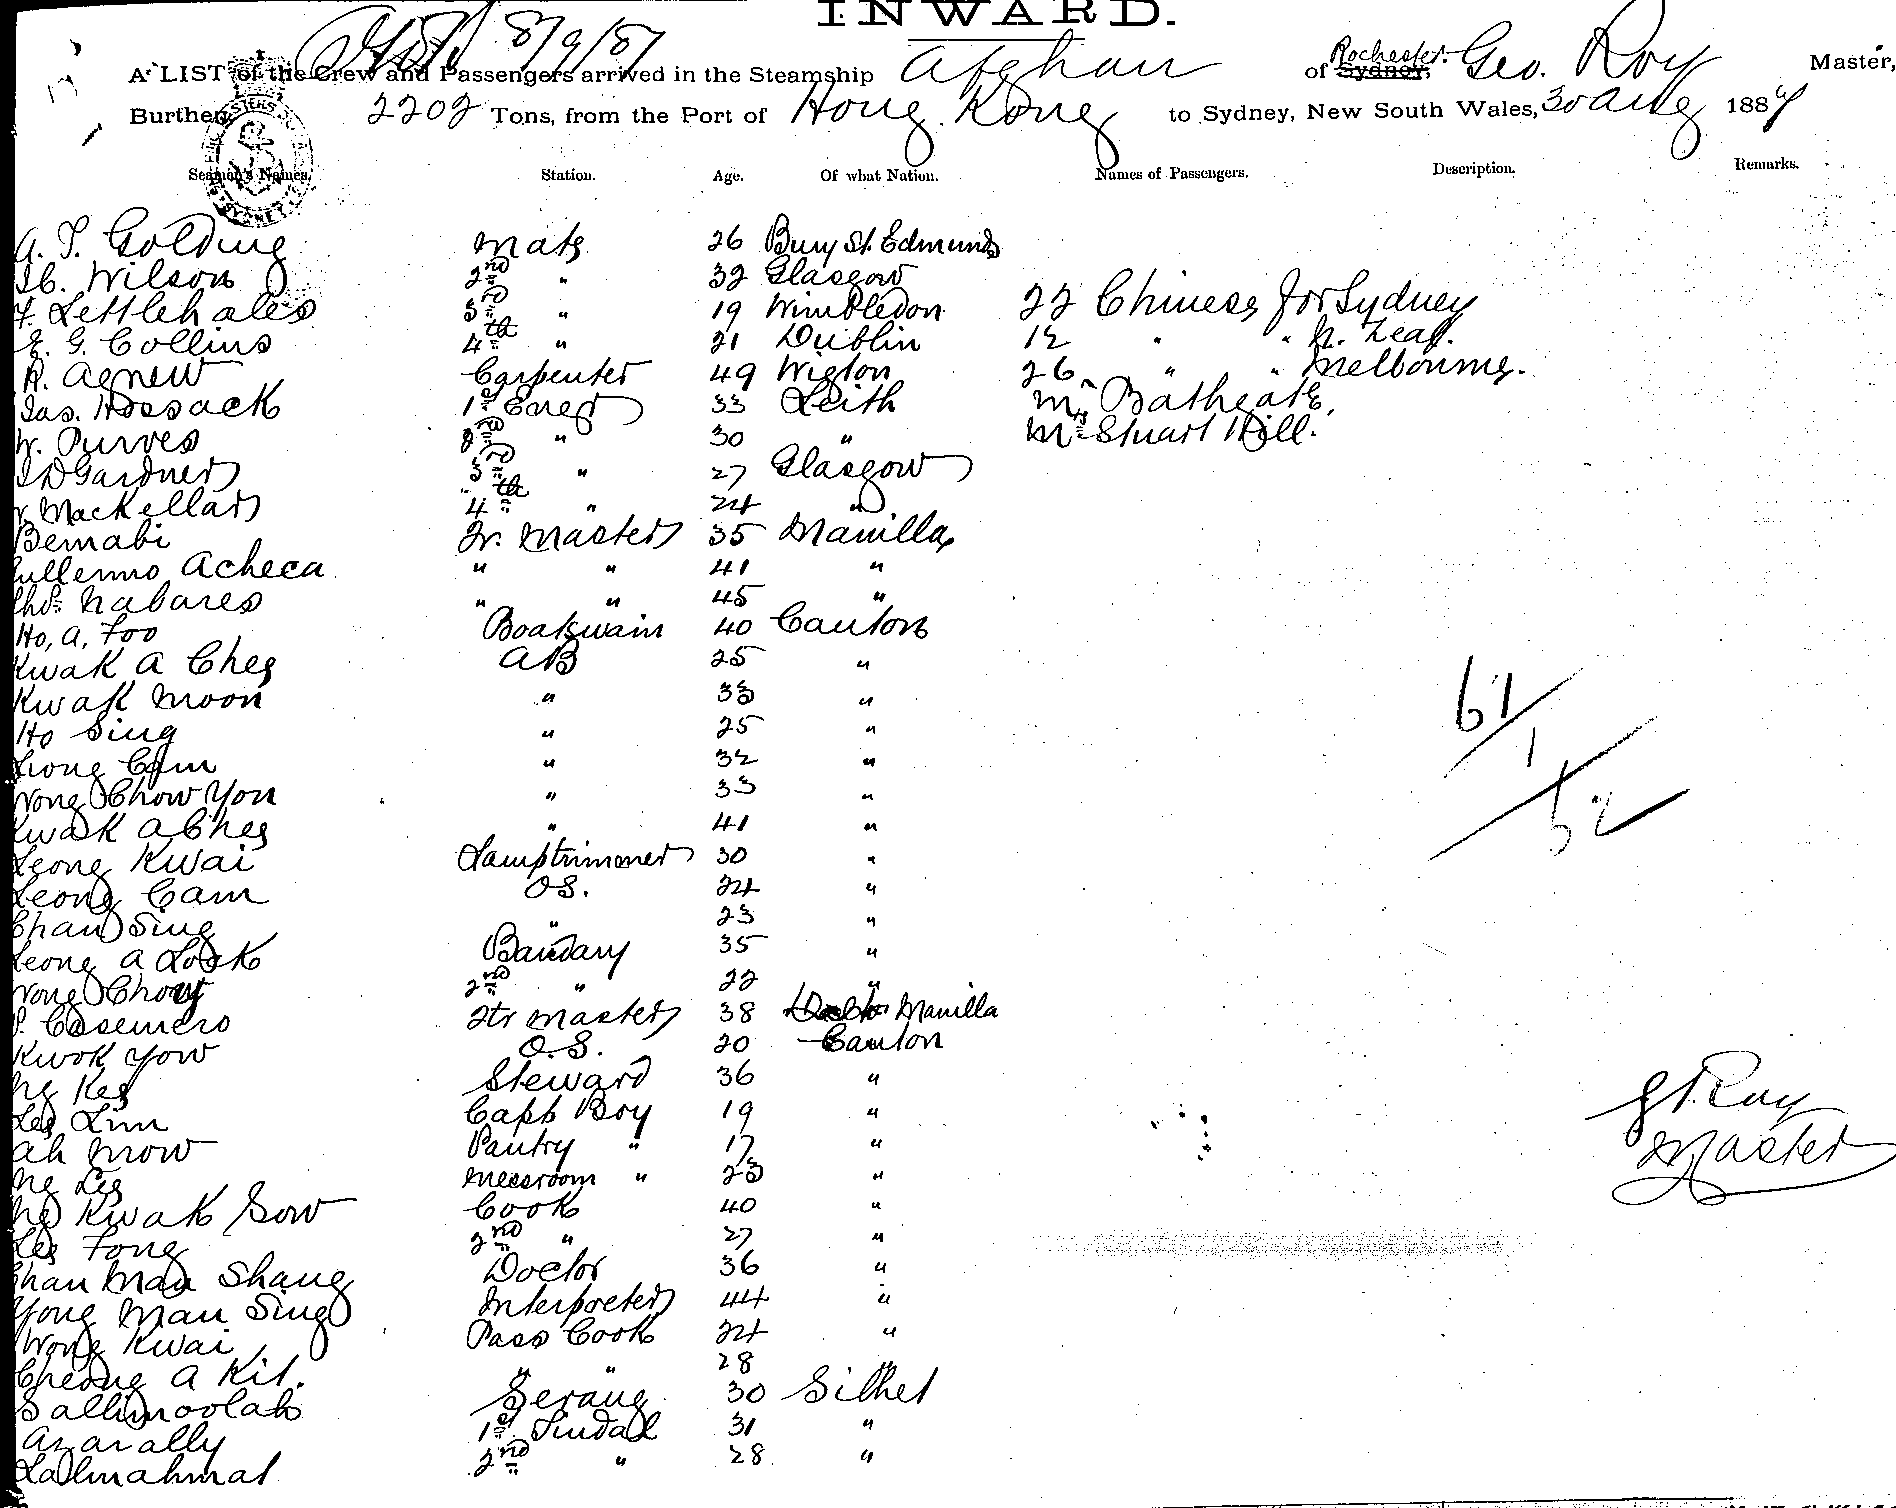 INWARD.
8/9/87
A LIST of the Crew and Passengers arrived in the Steamship Afghan of Sydney, Rochester. Geo. Roy Master,
Burthen 2202 Tons, from the Port of Hong Kong to Sydney, New South Wales, 30 Aug 1887
Seamen's Names. Station. Age. Of what Nation. Names of Passengers. Description. Remarks.
A. T. Golding Mate 26 Bury St. Edmunds
Wilson 2nd " 32 Glasgow 22 Chinese for Sydney
F. Lettlehales 3rd " 19 Wimbledon
E. G. Collins 4th " 21 Dublin 12 " " N. Zeal.
R. Agnew Carpenter 49 Wigton 26 " " Melbourne.
Jas. Hossack 1st Engr 33 Leith Bathgate,
W. Purves 2nd " 30 " Mr Stuart Hill.
J D Gardner 3rd " 27 Glasgow
MacKellar 4th " 24 "
Bernabi Qr. Master 35 Manilla
Gullermo Acheca " " 41 "
Thos. Nabares " " 45 "
Ho, A, Foo Boatswain 40 Canton
Kwak A Chee AB 25 "
Kwak Moon " 33 "
Ho Sing " 25 "
Leong Cam " 32 "
Wong Chow Yon " 33 "
Kwak A Chee " 41 "
Leong Kwai Lamptrimmer 30 "
Leong Cam OS. 24 "
Chan Sing " 23 "
Leong A Look Bandary 35 "
Wong Chow 2nd " 22 "
P. Casemero Qtr Master 38 Manilla
Kwok Yow O.S. 20 Canton
Ng Kee Steward 36 "
Lee Lim Capt Boy 19 "
Ah Mow Pantry " 17 "
Ng Lee Messroom " 23 "
Ng Kwak Sow Cook 40 "
Lee Fong 2nd " 27 "
Chan Man Shang Doctor 36 "
Yong Man Sing Interpreter 44 "
Wong Kwai Pass Cook 24 "
Cheong A Kit. " " 28 "
Sallimoolah Serang 30 Silhet
Azarally 1st Tindal 31 "
Lallmahmat 2nd " 28 "
61/1/52
G. Roy
Master